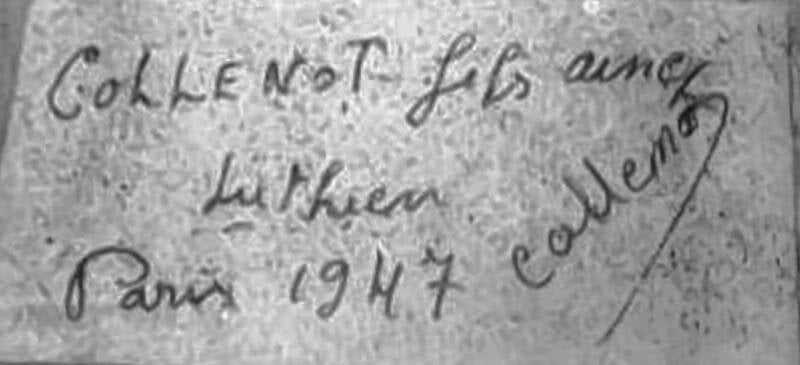 COLLENOT fils aine
Luthier
Paris 1947
Collenot